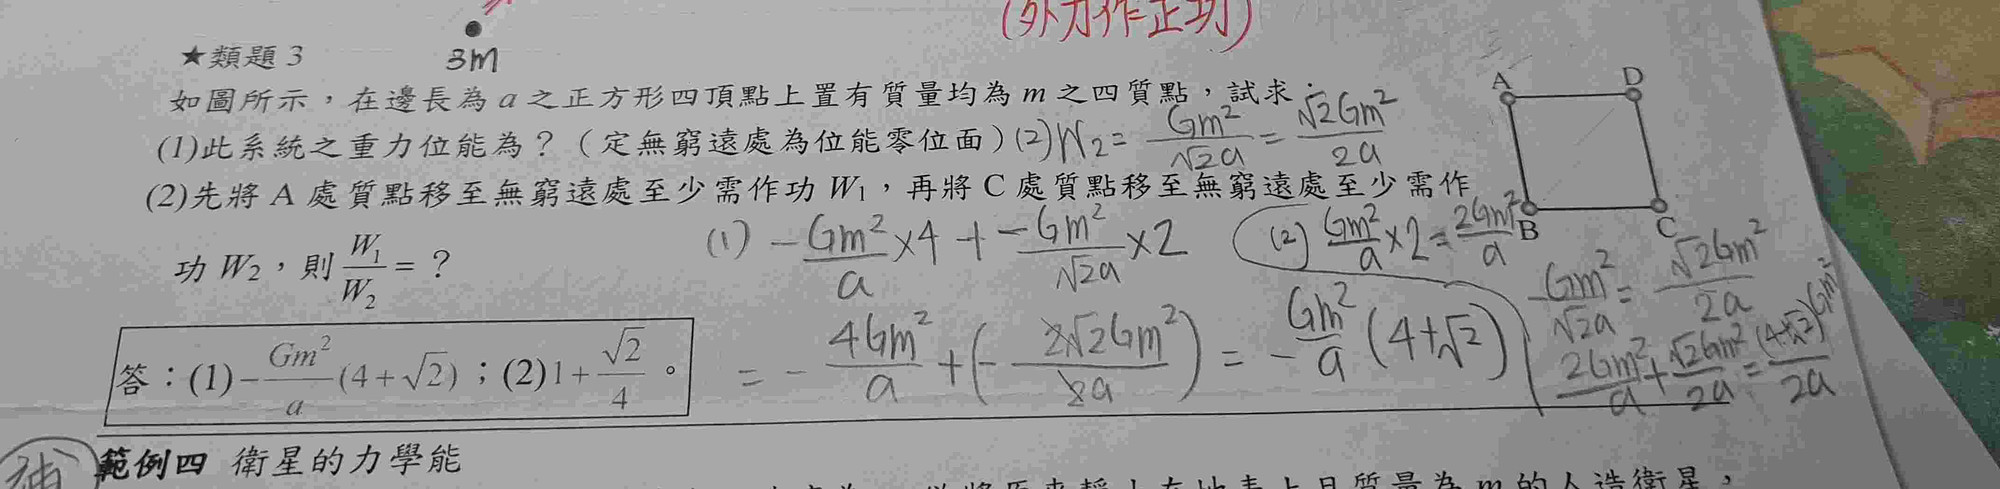 (外力作正功)
3m
★類題 3
如圖所示，在邊長為 a 之正方形四頂點上置有質量均為 m 之四質點，試求：
(1)此系統之重力位能為？（定無窮遠處為位能零位面）
(2) W₂ = Gm²/√2a = √2Gm²/2a
(2)先將 A 處質點移至無窮遠處至少需作功 W₁，再將 C 處質點移至無窮遠處至少需作
功 W₂，則 W₁/W₂ = ？
A D
B C
(1) -Gm²/a ×4 + -Gm²/√2a ×2
= - 4Gm²/a + (- 2√2Gm²/2a) = - Gm²/a (4+√2)
(2) Gm²/a ×2 = 2Gm²/a
Gm²/√2a = √2Gm²/2a
2Gm²/a + √2Gm²/2a = (4+√2)Gm²/2a
答：(1) -Gm²/a (4+√2)；(2) 1+√2/4。
補
範例四 衛星的力學能